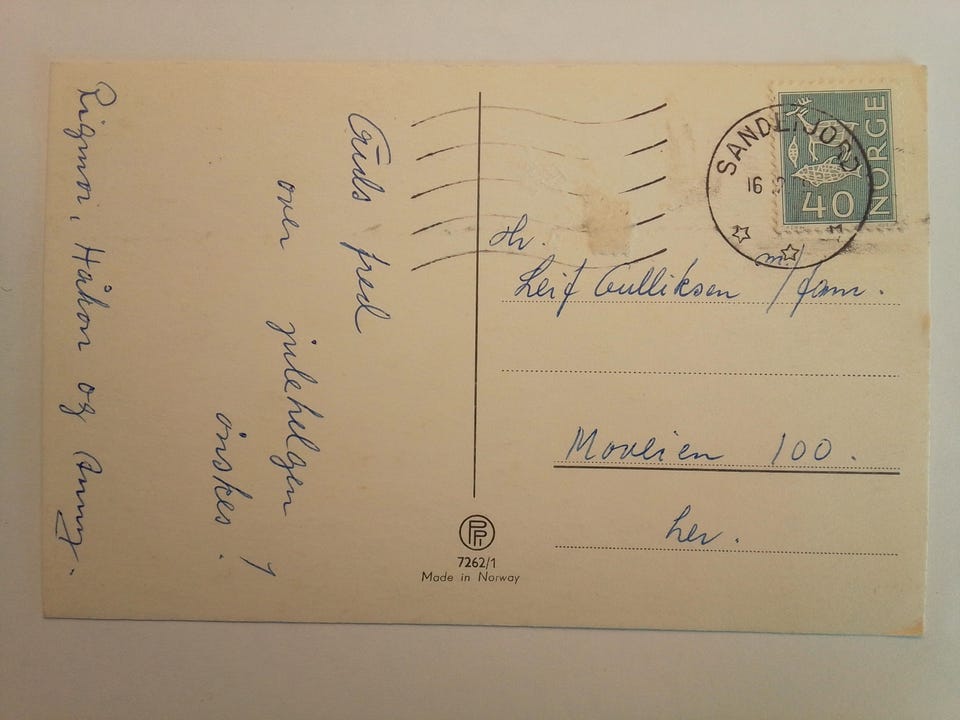 Guds fred
over julehelgen
ønskes!
Rigmor, Håkon og Anny.
SANDEFJORD
16
NORGE
40
Hr.
Leif Gulliksen m/fam.
Moveien 100.
her.
PP
7262/1
Made in Norway